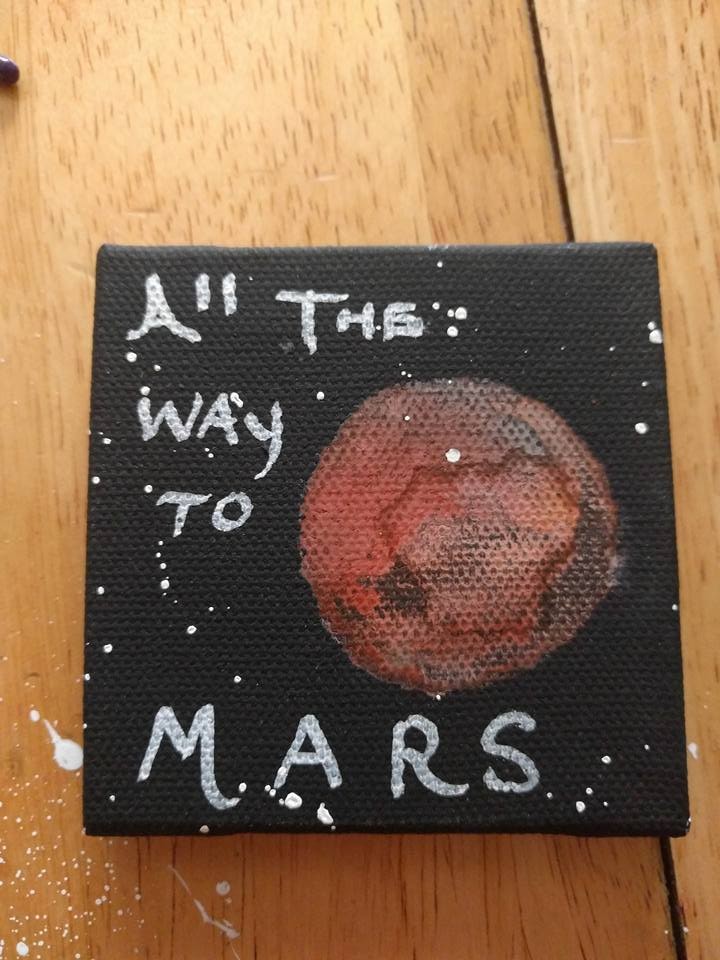 All THE
WAy
TO
MARS